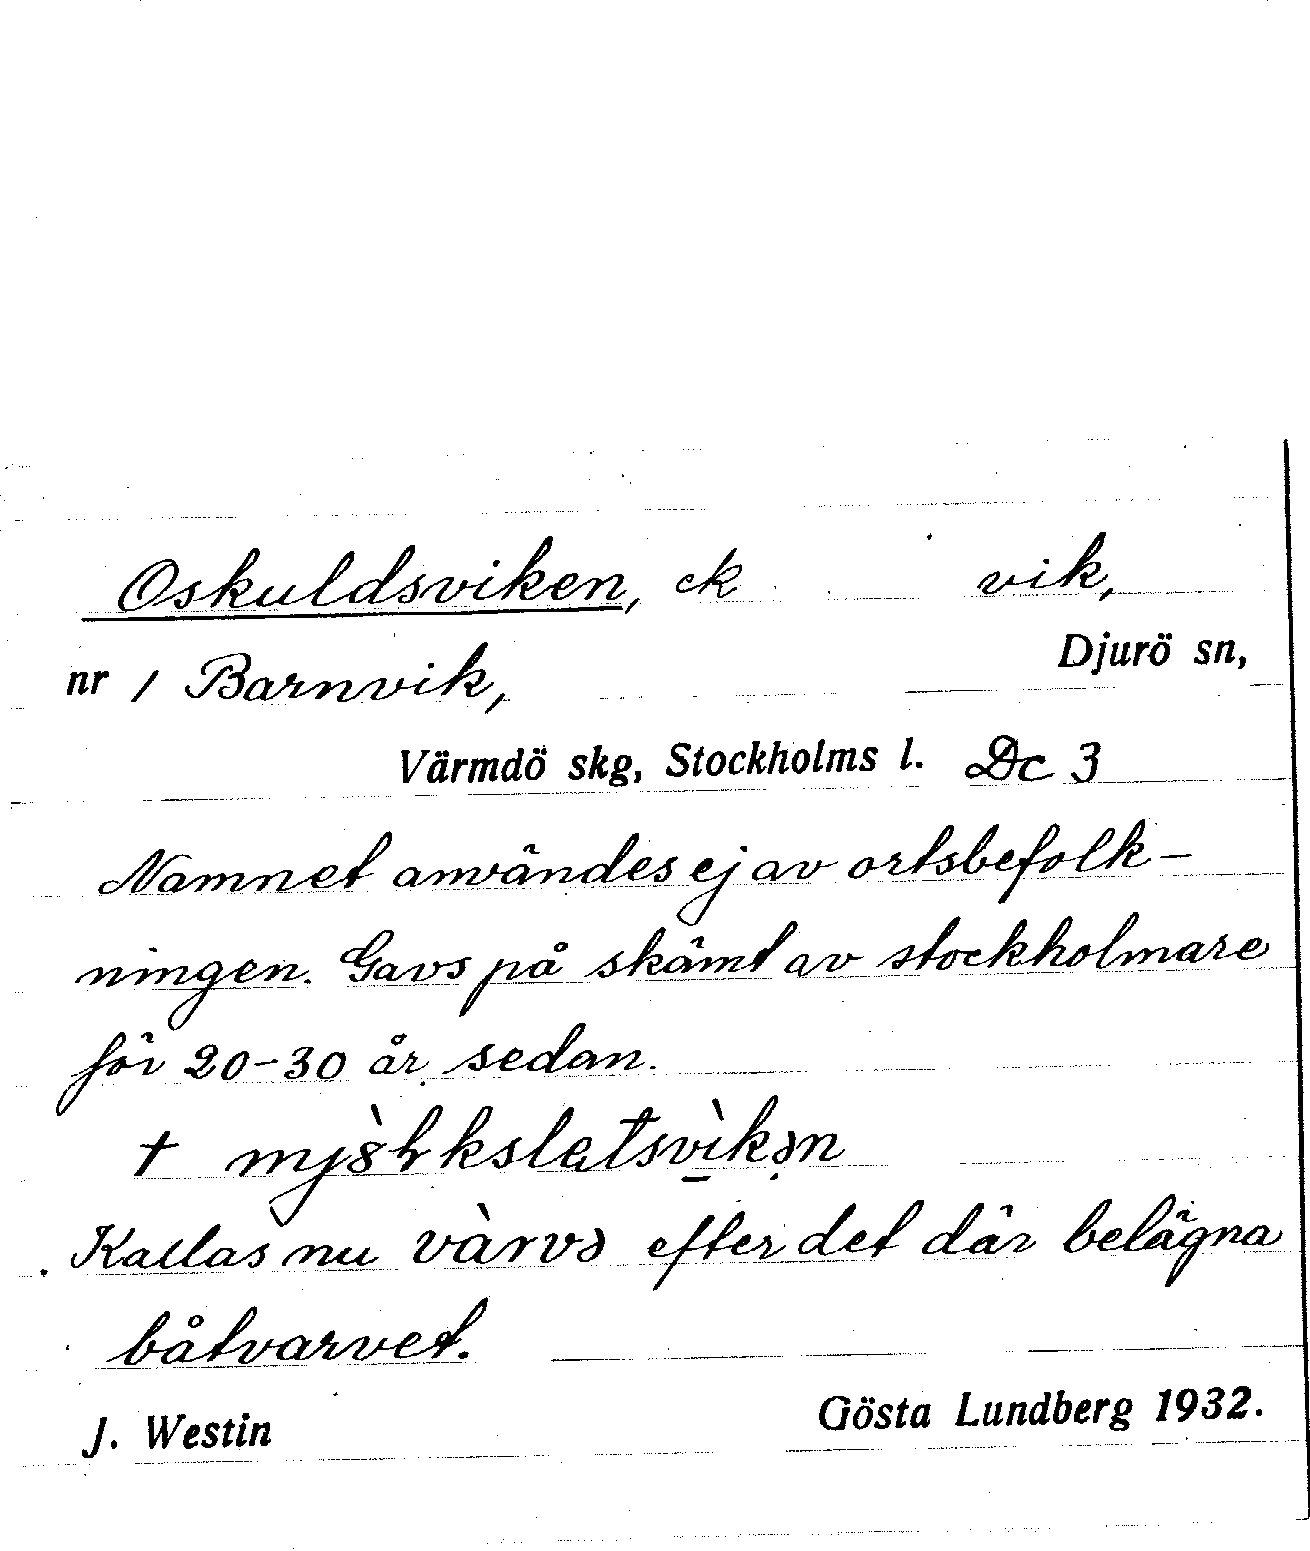 Oskuldsviken, ek vik,
Djurö sn,
nr 1 Barnvik,
Värmdö skg, Stockholms l. Dc 3
Namnet användes ej av ortsbefolk-
ningen. Gavs på skämt av stockholmare
för 20-30 år sedan.
†
Kallas nu vàrvə efter det där belägna
båtvarvet.
J. Westin Gösta Lundberg 1932.